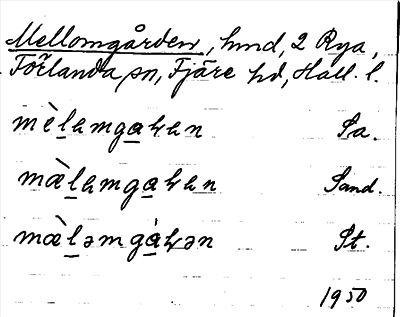 Mellomgården, hmd, 2 Rya,
Förlanda sn, Fjäre hd, Hall. l.
mèlamgaɽan Sa.
mæ̀lamgaɽan Sand.
mæ̀ləmgáɽən St.
1950